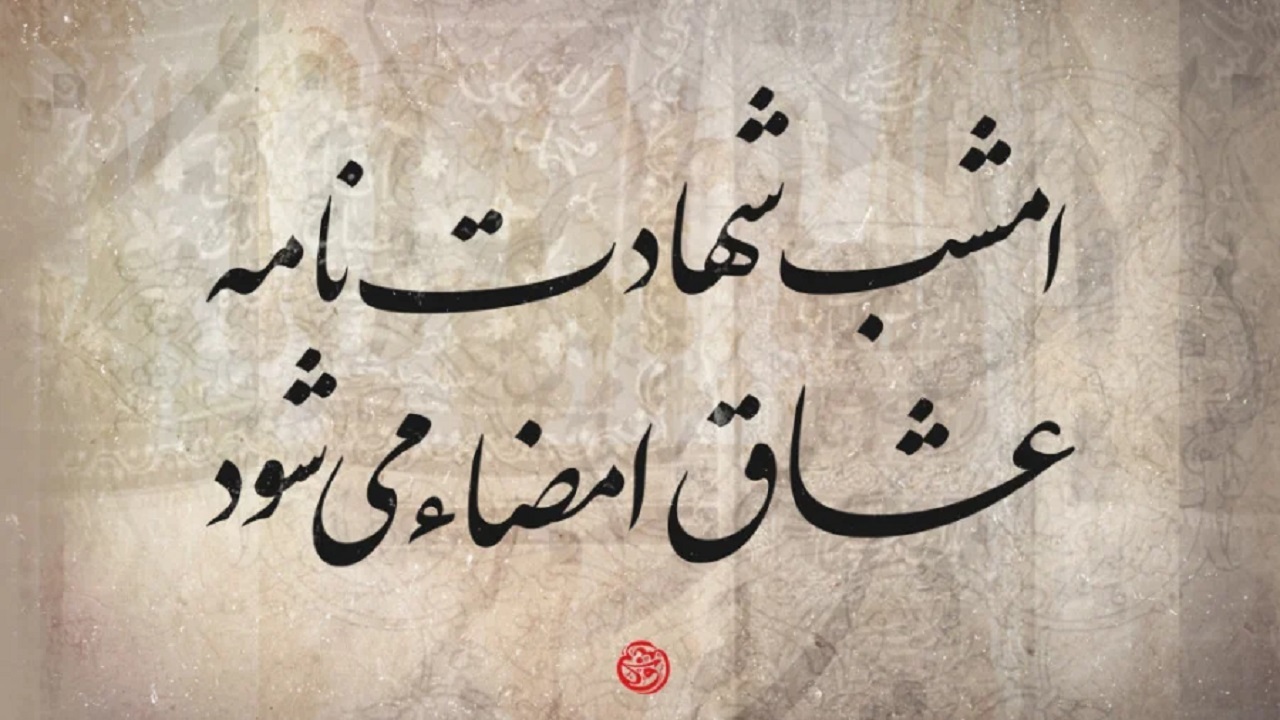 امشب شهادت‌نامه
عشاق امضاء می‌شود